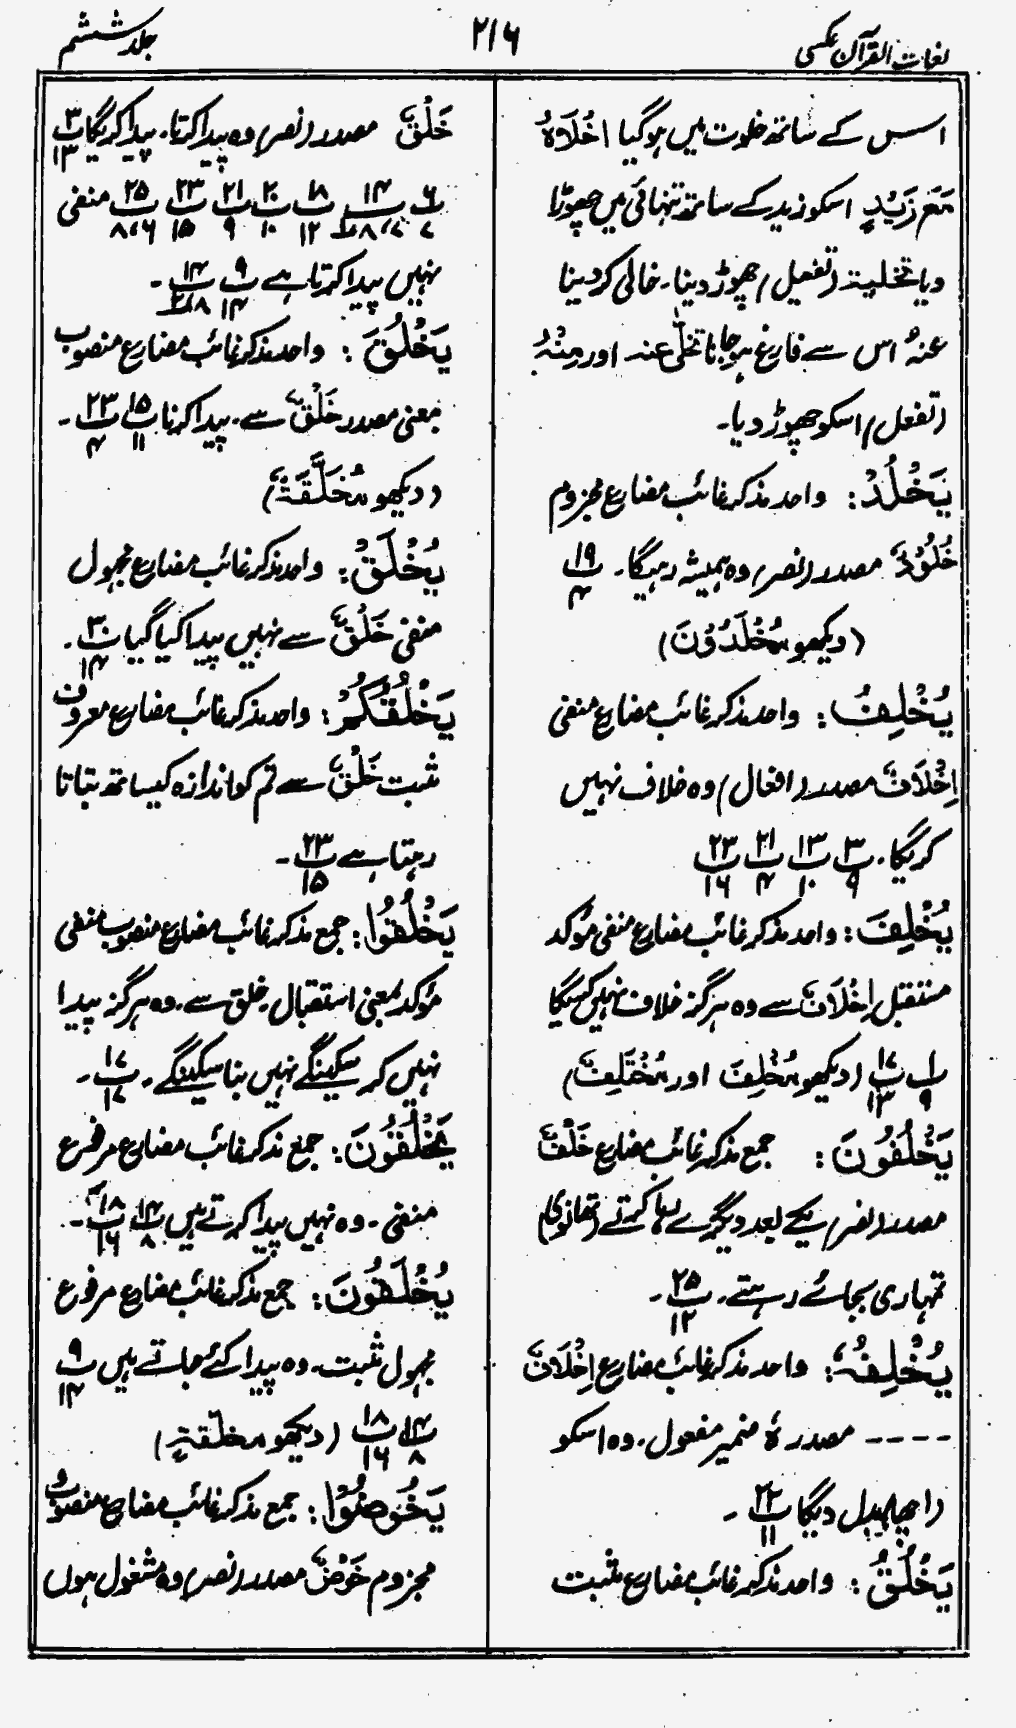 لغات القرآن عکسی
۲۱۶
جلد ششم
اس کے ساتھ خلوت میں ہو گیا اَخْلَاهُ
مَعَ زَيْدٍ اسکو زید کے ساتھ تنہائی میں چھوڑا
دیا تخلیۃ (تفعیل) چھوڑ دینا۔ خالی کر دینا
عنہُ اس سے فارغ ہو جانا تخلّی عنہ اور مِنْہُ
(تفعل) اسکو چھوڑ دیا۔
يَخْلُدْ: واحد مذکر غائب مضارع مجزوم
خُلُوْدٌ مصدر (نصر) وہ ہمیشہ رہیگا۔ پ ۱۹/۴
(دیکھو مُخْلَدُوْنَ)
يُخْلِفُ: واحد مذکر غائب مضارع منفی
اِخْلَافٌ مصدر (افعال) وہ خلاف نہیں
کریگا۔ پ ۳/۹ پ ۱۳/۱۰ پ ۲۱/۴ پ ۲۳/۱۶
يُخْلِفَ: واحد مذکر غائب مضارع منفی مؤکد
مستقبل اِخْلَافٌ سے وہ ہرگز خلاف نہیں کریگا
پ ۱/۹ پ ۱۷/۱۳ (دیکھو مُخْلِفَ اور مُخْتَلِفٌ)
يَخْلُفُوْنَ: جمع مذکر غائب مضارع خَلْفٌ
مصدر (نصر) یکے بعد دیگرے رہا کرتے (تھانوی)
تمہاری بجائے رہتے۔ پ ۲۵/۱۲۔
يُخْلِفُهٗ: واحد مذکر غائب مضارع اِخْلَافٌ
---- مصدر ہٗ ضمیر مفعول۔ وہ اسکو
(اچھا) بدل دیگا پ ۲۲/۱۱۔
يَخْلُقُ: واحد مذکر غائب مضارع مثبت
خَلْقٌ مصدر (نصر) وہ پیدا کرتا۔ پیدا کریگا پ ۳/۱۳
پ ۶/۷ پ ۱۴/۷،۸ پ ۱۸/۱۲ پ ۲۰/۱۰ پ ۲۱/۹ پ ۲۳/۱۵ پ ۲۵/۶،۸ منفی
نہیں پیدا کرتا ہے پ ۹/۱۴ پ ۱۴/۸۔
يَخْلُقَ: واحد مذکر غائب مضارع منصوب
بمعنی مصدر خَلْقٌ سے۔ پیدا کرنا پ ۱۵/۱۱ پ ۲۳/۴۔
(دیکھو مُخَلَّقَةٌ)
يُخْلَقْ: واحد مذکر غائب مضارع مجہول
منفی خَلْقٌ سے نہیں پیدا کیا گیا پ ۳۰/۱۴۔
يَخْلُقُكُمْ: واحد مذکر غائب مضارع معروف
مثبت خَلْقٌ سے تم کو اندازہ کیساتھ بناتا
رہتا ہے پ ۲۳/۱۵۔
يَخْلُقُوْا: جمع مذکر غائب مضارع منصوب منفی
مؤکد بمعنی استقبال۔ خلق سے۔ وہ ہرگز پیدا
نہیں کر سکینگے نہیں بنا سکینگے۔ پ ۱۷/۱۷۔
يَخْلُقُوْنَ: جمع مذکر غائب مضارع مرفوع
منفی۔ وہ نہیں پیدا کرتے ہیں پ ۱۴/۸ پ ۱۸/۱۶۔
يُخْلَقُوْنَ: جمع مذکر غائب مضارع مرفوع
مجہول مثبت۔ وہ پیدا کئے جاتے ہیں پ ۹/۱۴
پ ۱۴/۸ پ ۱۸/۱۶ (دیکھو مخلّقةٍ)
يَخُوْضُوْا: جمع مذکر غائب مضارع منصوب و
مجزوم خَوْضٌ مصدر (نصر) وہ مشغول ہوں